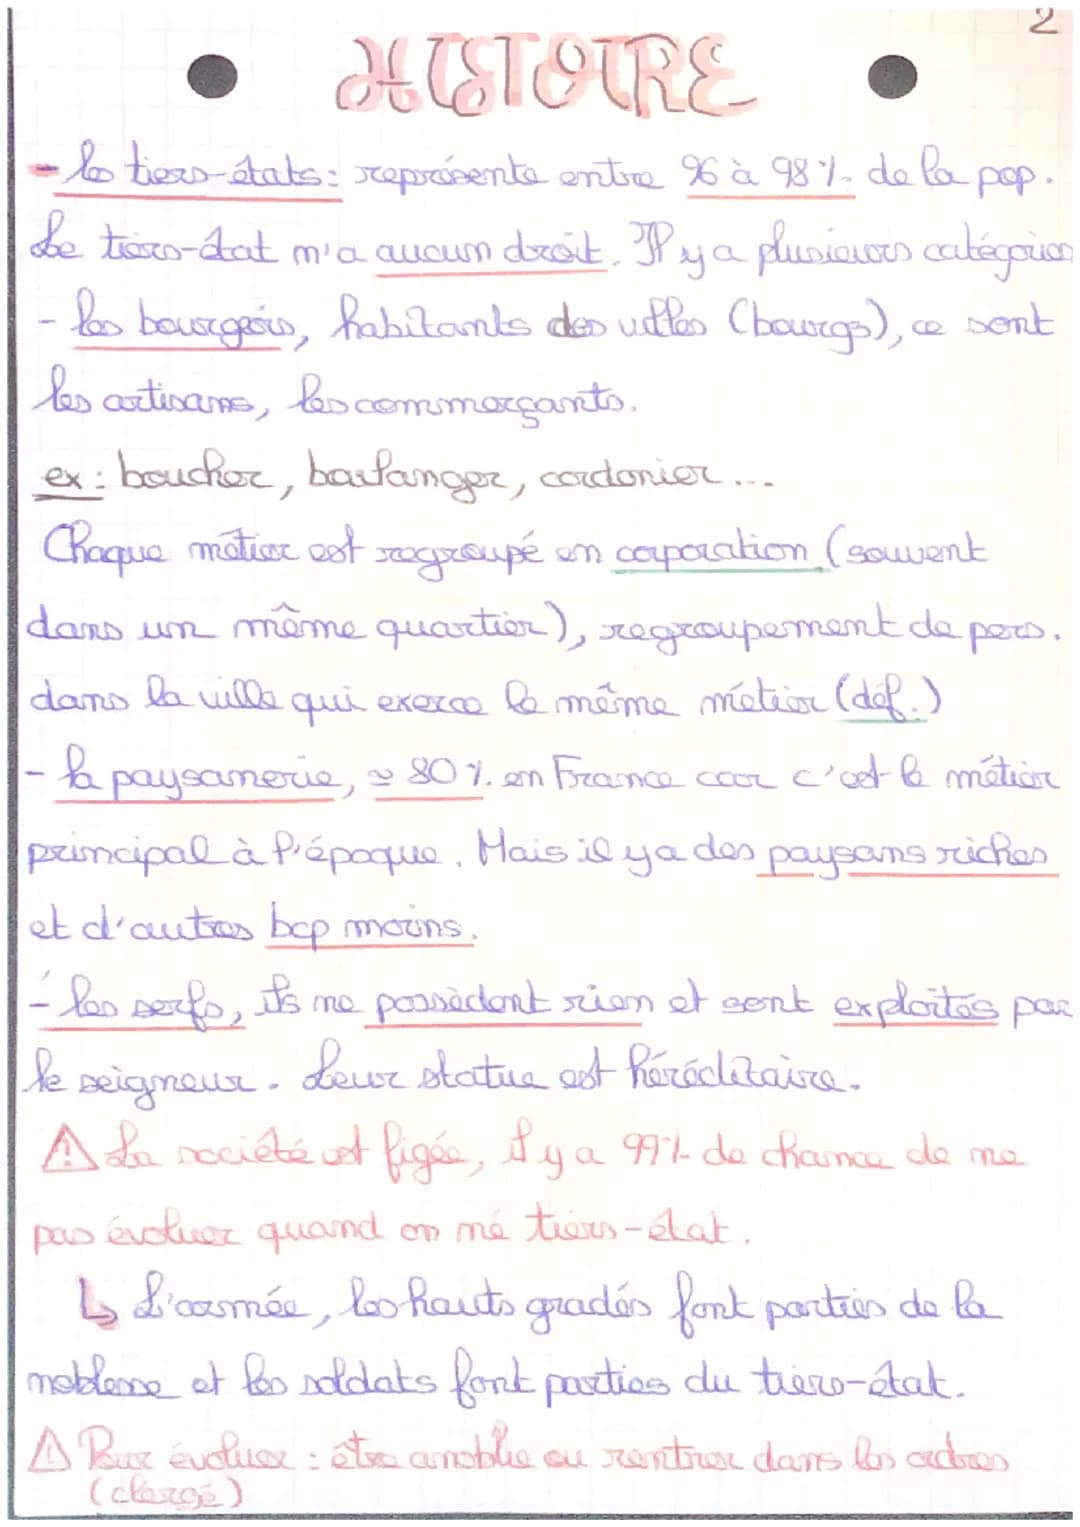 2
HISTOIRE
- les tiers-états: représente entre 96 à 98 % de la pop.
Le tiers-état n'a aucun droit. Il y a plusieurs catégories
- les bourgeois, habitants des villes (bourgs), ce sont
les artisans, les commerçants.
ex: boucher, boulanger, cordonier...
Chaque métier est regroupé en corporation (souvent
dans un même quartier), regroupement de pers.
dans la ville qui exerce le même métier (déf.)
- la paysanerie, ≃ 80 %. en France car c'est le métier
principal à l'époque. Mais il y a des paysans riches
et d'autres bcp moins.
- les serfs, ils ne possèdent rien et sont exploités par
le seigneur. Leur statue est héréditaire.
⚠ La société est figée, il y a 99% de chance de ne
pas évoluer quand on né tiers-état.
↳ L'armée, les hauts gradés font parties de la
noblesse et les soldats font parties du tiers-état.
⚠ Pour évoluer : être anoblie ou rentrer dans les ordres
(clergé)